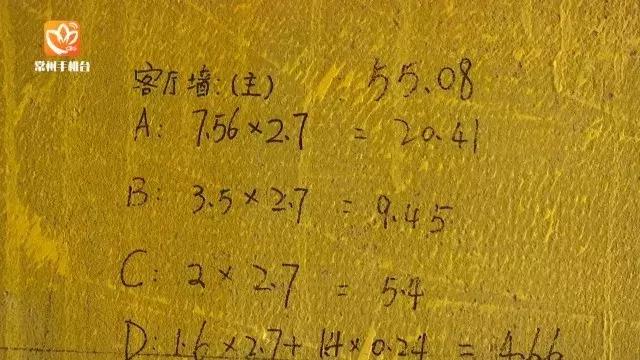 常州手机台
客厅墙:(主) 55.08
A: 7.56×2.7 = 20.41
B: 3.5×2.7 = 9.45
C: 2×2.7 = 5.4
D: 1.6×2.7+14×0.24 = 4.66